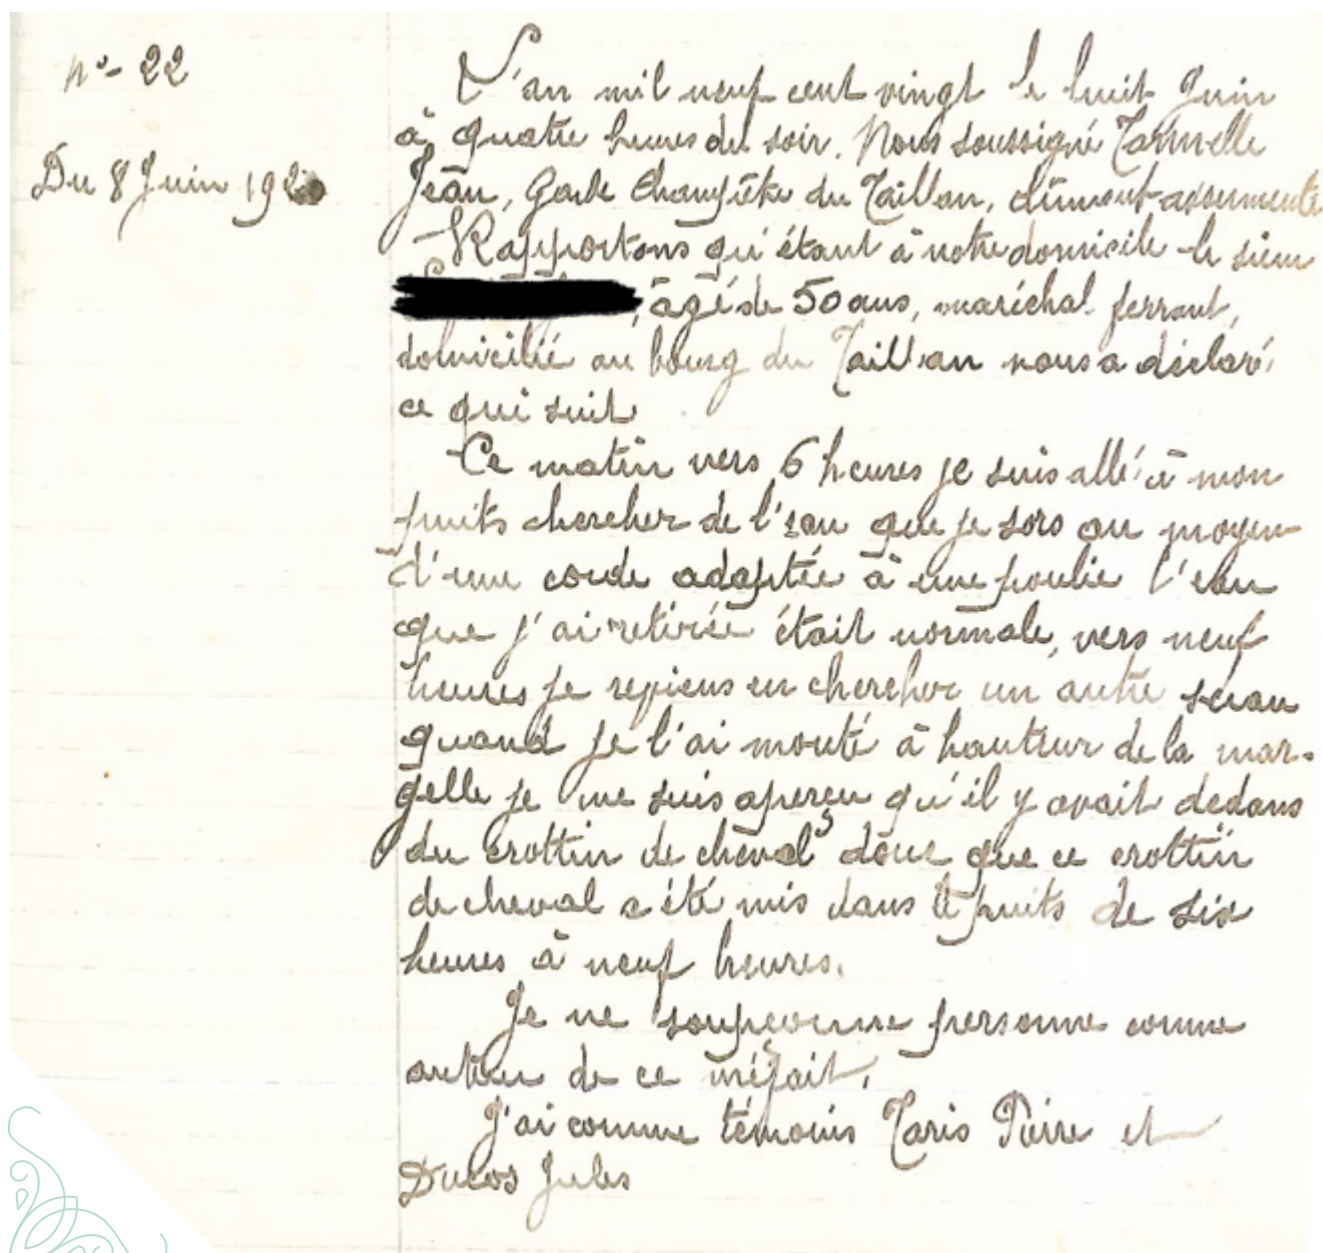 n°- 22
Du 8 Juin 1920
L'an mil neuf cent vingt le huit Juin
à quatre heures du soir. Nous soussigné
Jean, Garde Champêtre du Taillan, dûment assermenté
Rapportons qu'étant à notre domicile le sieur
, âgé de 50 ans, maréchal-ferrant,
domicilié au bourg du Taillan nous a déclaré
ce qui suit
Ce matin vers 6 heures je suis allé à mon
puits chercher de l'eau que je sors au moyen
d'une corde adaptée à une poulie l'eau
que j'ai retirée était normale, vers neuf
heures je repiens en chercher un autre seeau
quand je l'ai monté à hauteur de la mar-
gelle je me suis aperçu qu'il y avait dedans
du crottin de cheval donc que ce crottin
de cheval a été mis dans le puits de six
heures à neuf heures.
Je ne soupçonne personne comme
auteur de ce méfait.
J'ai comme témoins Taris Pierre et
Duclos Jules